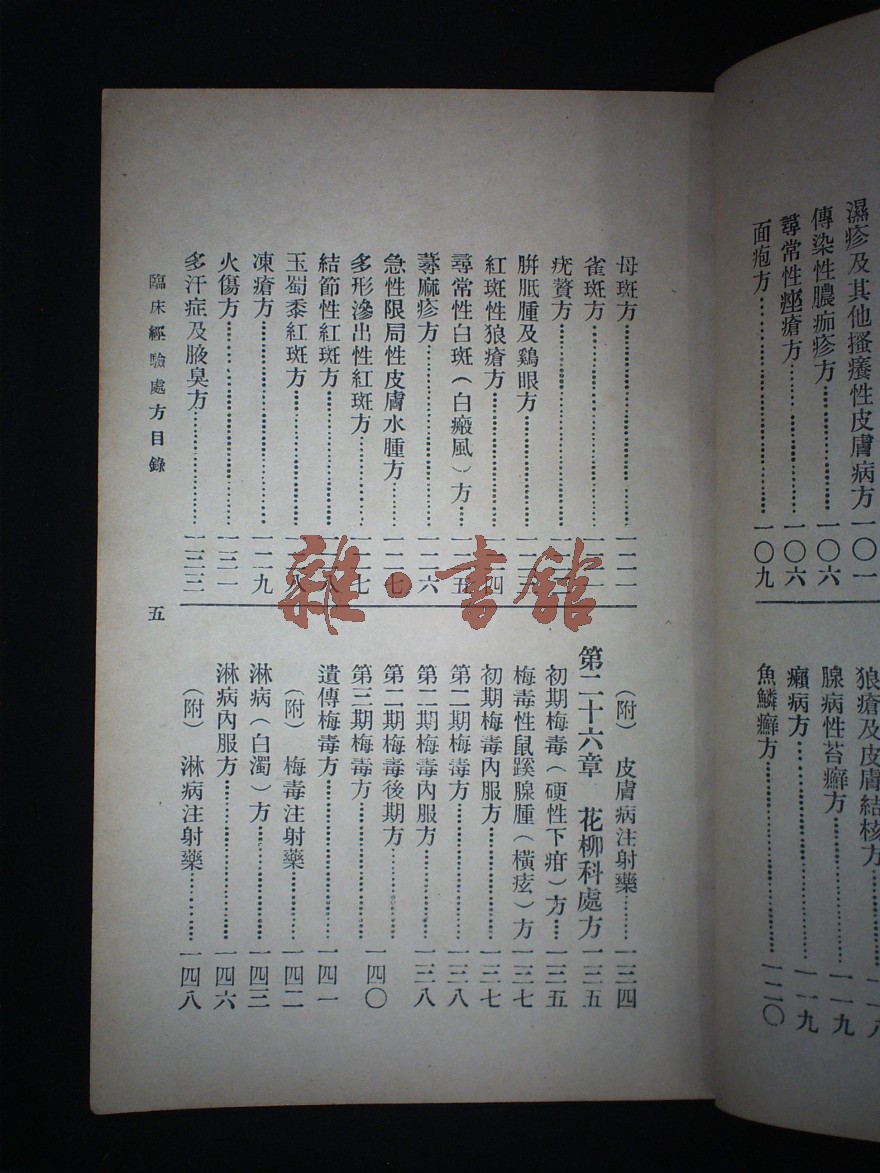 濕疹及其他搔癢性皮膚病方 一〇一
傳染性膿痂疹方…… 一〇六
尋常性痤瘡方…… 一〇六
面疱方…… 一〇九
狼瘡及皮膚結核方…… 一一八
腺病性苔癬方…… 一一九
癩病方…… 一一九
魚鱗癬方…… 一二〇
母斑方…… 一二一
雀斑方……
疣贅方……
胼胝腫及鷄眼方……
紅斑性狼瘡方……
尋常性白斑(白癜風)方……
蕁麻疹方…… 一二六
急性限局性皮膚水腫方…… 一二七
多形滲出性紅斑方…… 一二七
結節性紅斑方…… 一二八
玉蜀黍紅斑方…… 一二八
凍瘡方…… 一二九
火傷方…… 一三一
多汗症及腋臭方…… 一三三
(附) 皮膚病注射藥…… 一三四
第二十六章 花柳科處方 一三五
初期梅毒(硬性下疳)方…… 一三五
梅毒性鼠蹊腺腫(橫痃)方 一三七
初期梅毒內服方…… 一三七
第二期梅毒方…… 一三八
第二期梅毒內服方…… 一三八
第二期梅毒後期方…… 一四〇
第三期梅毒方……
遺傳梅毒方…… 一四一
(附) 梅毒注射藥…… 一四二
淋病(白濁)方…… 一四三
淋病內服方…… 一四六
(附) 淋病注射藥…… 一四八
臨床經驗處方目錄 五
雜·書館